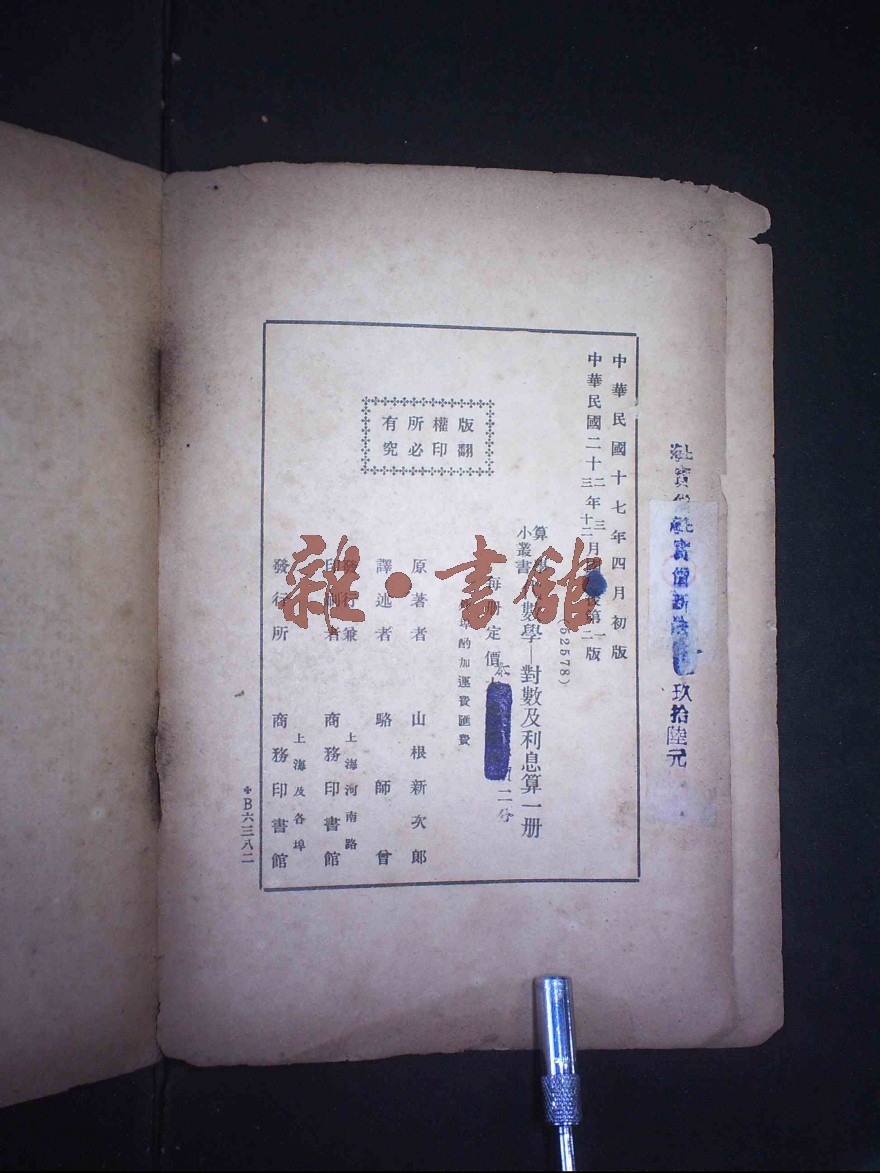 實價
玖拾陸元
中華民國十七年四月初版
中華民國二十二年三月
三年十二月
第一版
二
(52578)
算
小叢書
數學—對數及利息算一册
每册定價大
二分
外埠酌加運費匯費
版權所有
翻印必究
原著者 山根新次郎
譯述者 駱師曾
發行兼
印刷者
上海河南路
商務印書館
發行所
上海及各埠
商務印書館
B六三八二
雜·書館